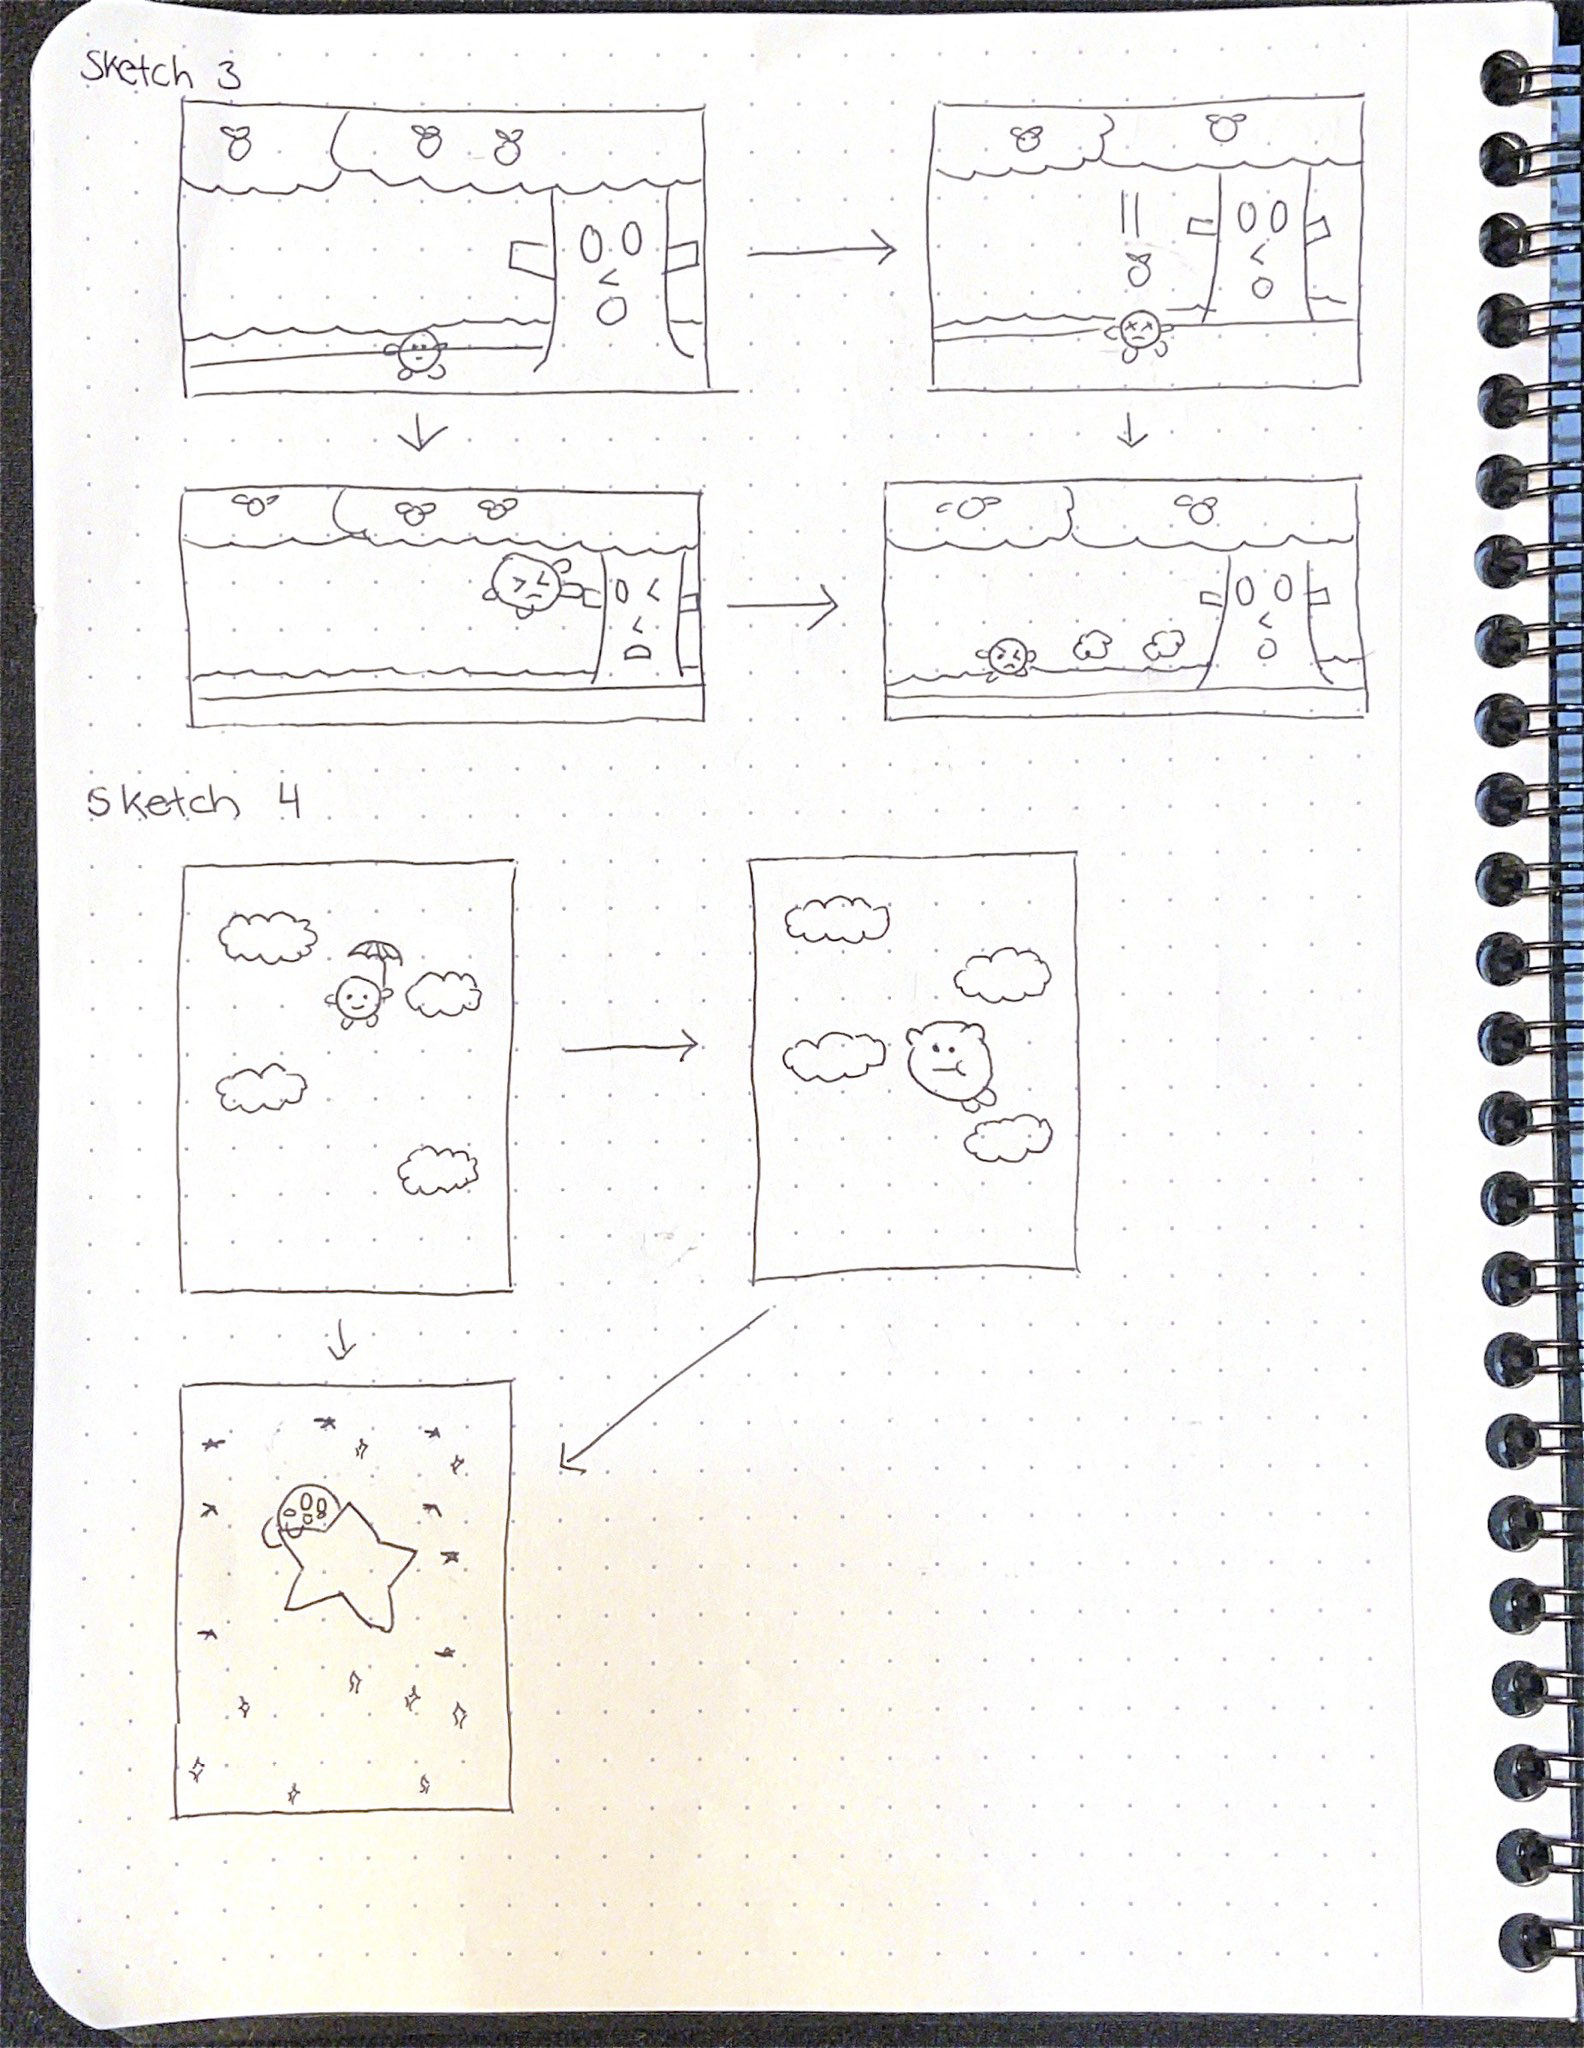 Sketch 3
Sketch 4